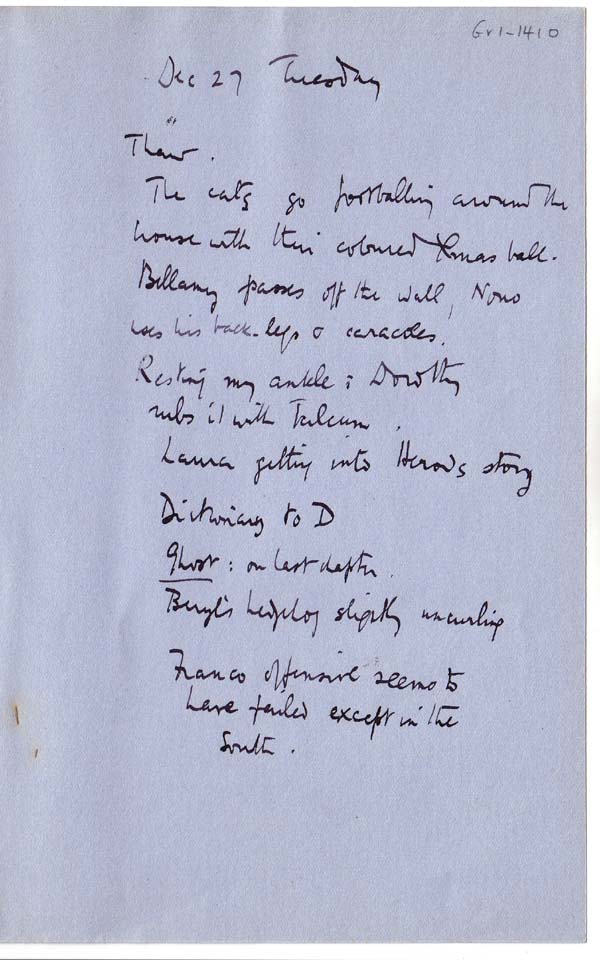 Gr1-1410
Dec 27 Tuesday
Thaw.
The cats go footballing around the
house with their coloured Xmas ball.
Bellamy passes off the wall, Nono
uses his back-legs & caracoles.
Resting my ankle; Dorothy
rubs it with Talcum.
Laura getting into Herod's story
Dictionary to D
Ghost: on last chapter.
Beryl's hedgehog slightly uncurling
Franco offensive seems to
have failed except in the
South.